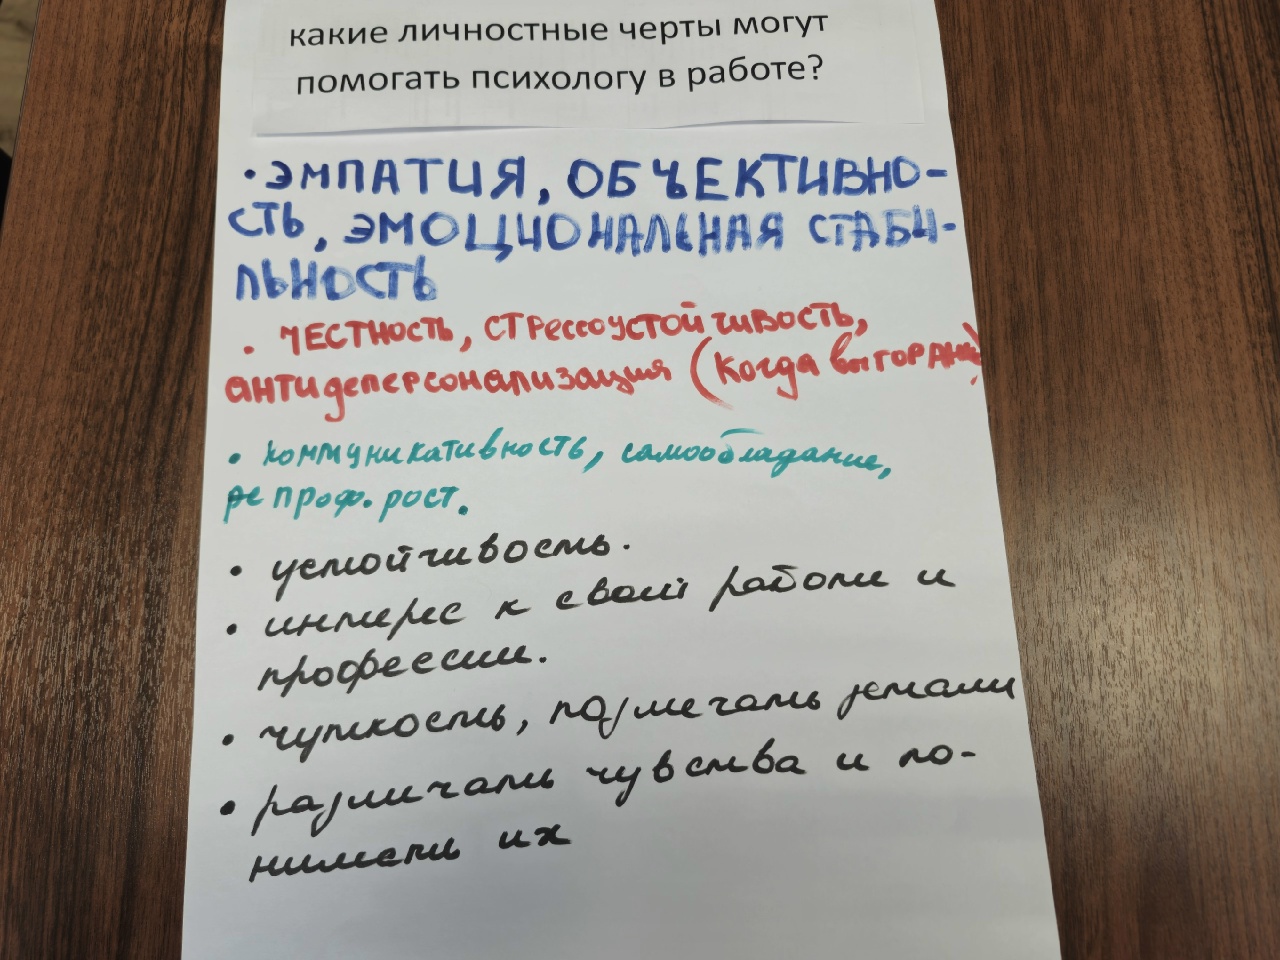 какие личностные черты могут
помогать психологу в работе?
• ЭМПАТИЯ, ОБЪЕКТИВНО-
СТЬ, ЭМОЦИОНАЛЬНАЯ СТАБИ-
ЛЬНОСТЬ
• ЧЕСТНОСТЬ, СТРессоустойчивость,
антидеперсонализация (Когда
• коммуникативность, самообладание,
проф. рост.
• устойчивость.
• интерес к своей работе и
профессии.
• чуткость, детали
• различать чувства и по-
нимать их